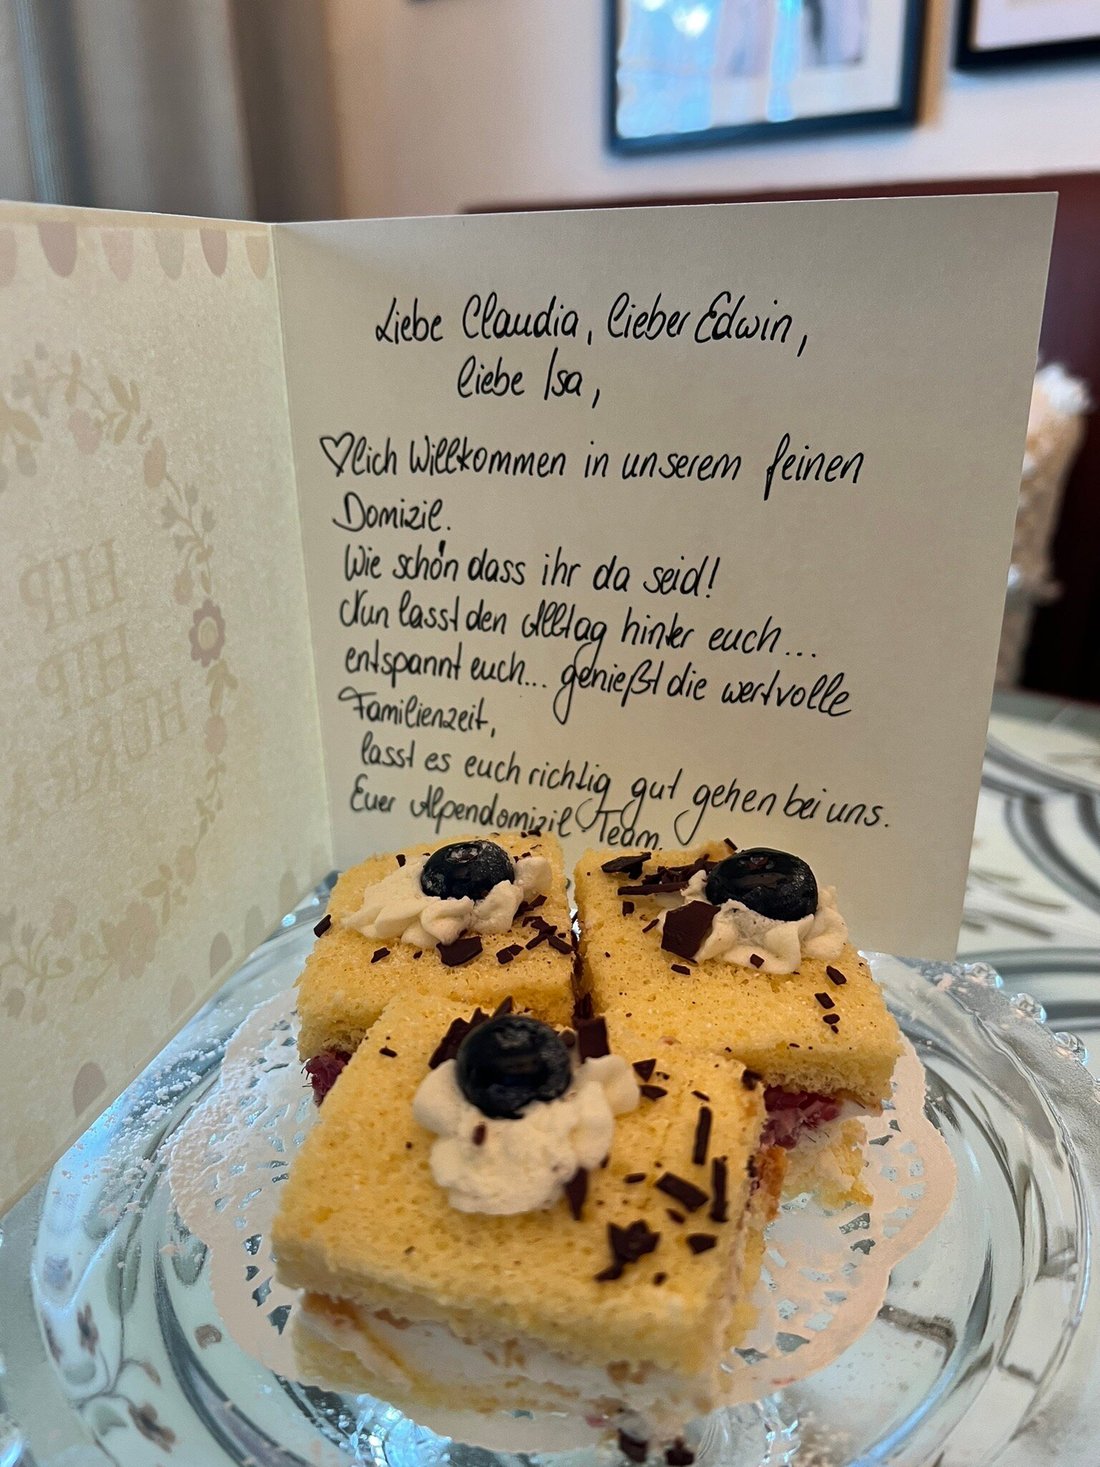 Liebe Claudia, lieber Edwin,
liebe Isa,
♡lich Willkommen in unserem feinen
Domizil.
Wie schön dass ihr da seid!
Nun lasst den Alltag hinter euch...
entspannt euch... genießt die wertvolle
Familienzeit,
lasst es euch richtig gut gehen bei uns.
Euer Alpendomizil Team.
HIP
HIP
HURRA